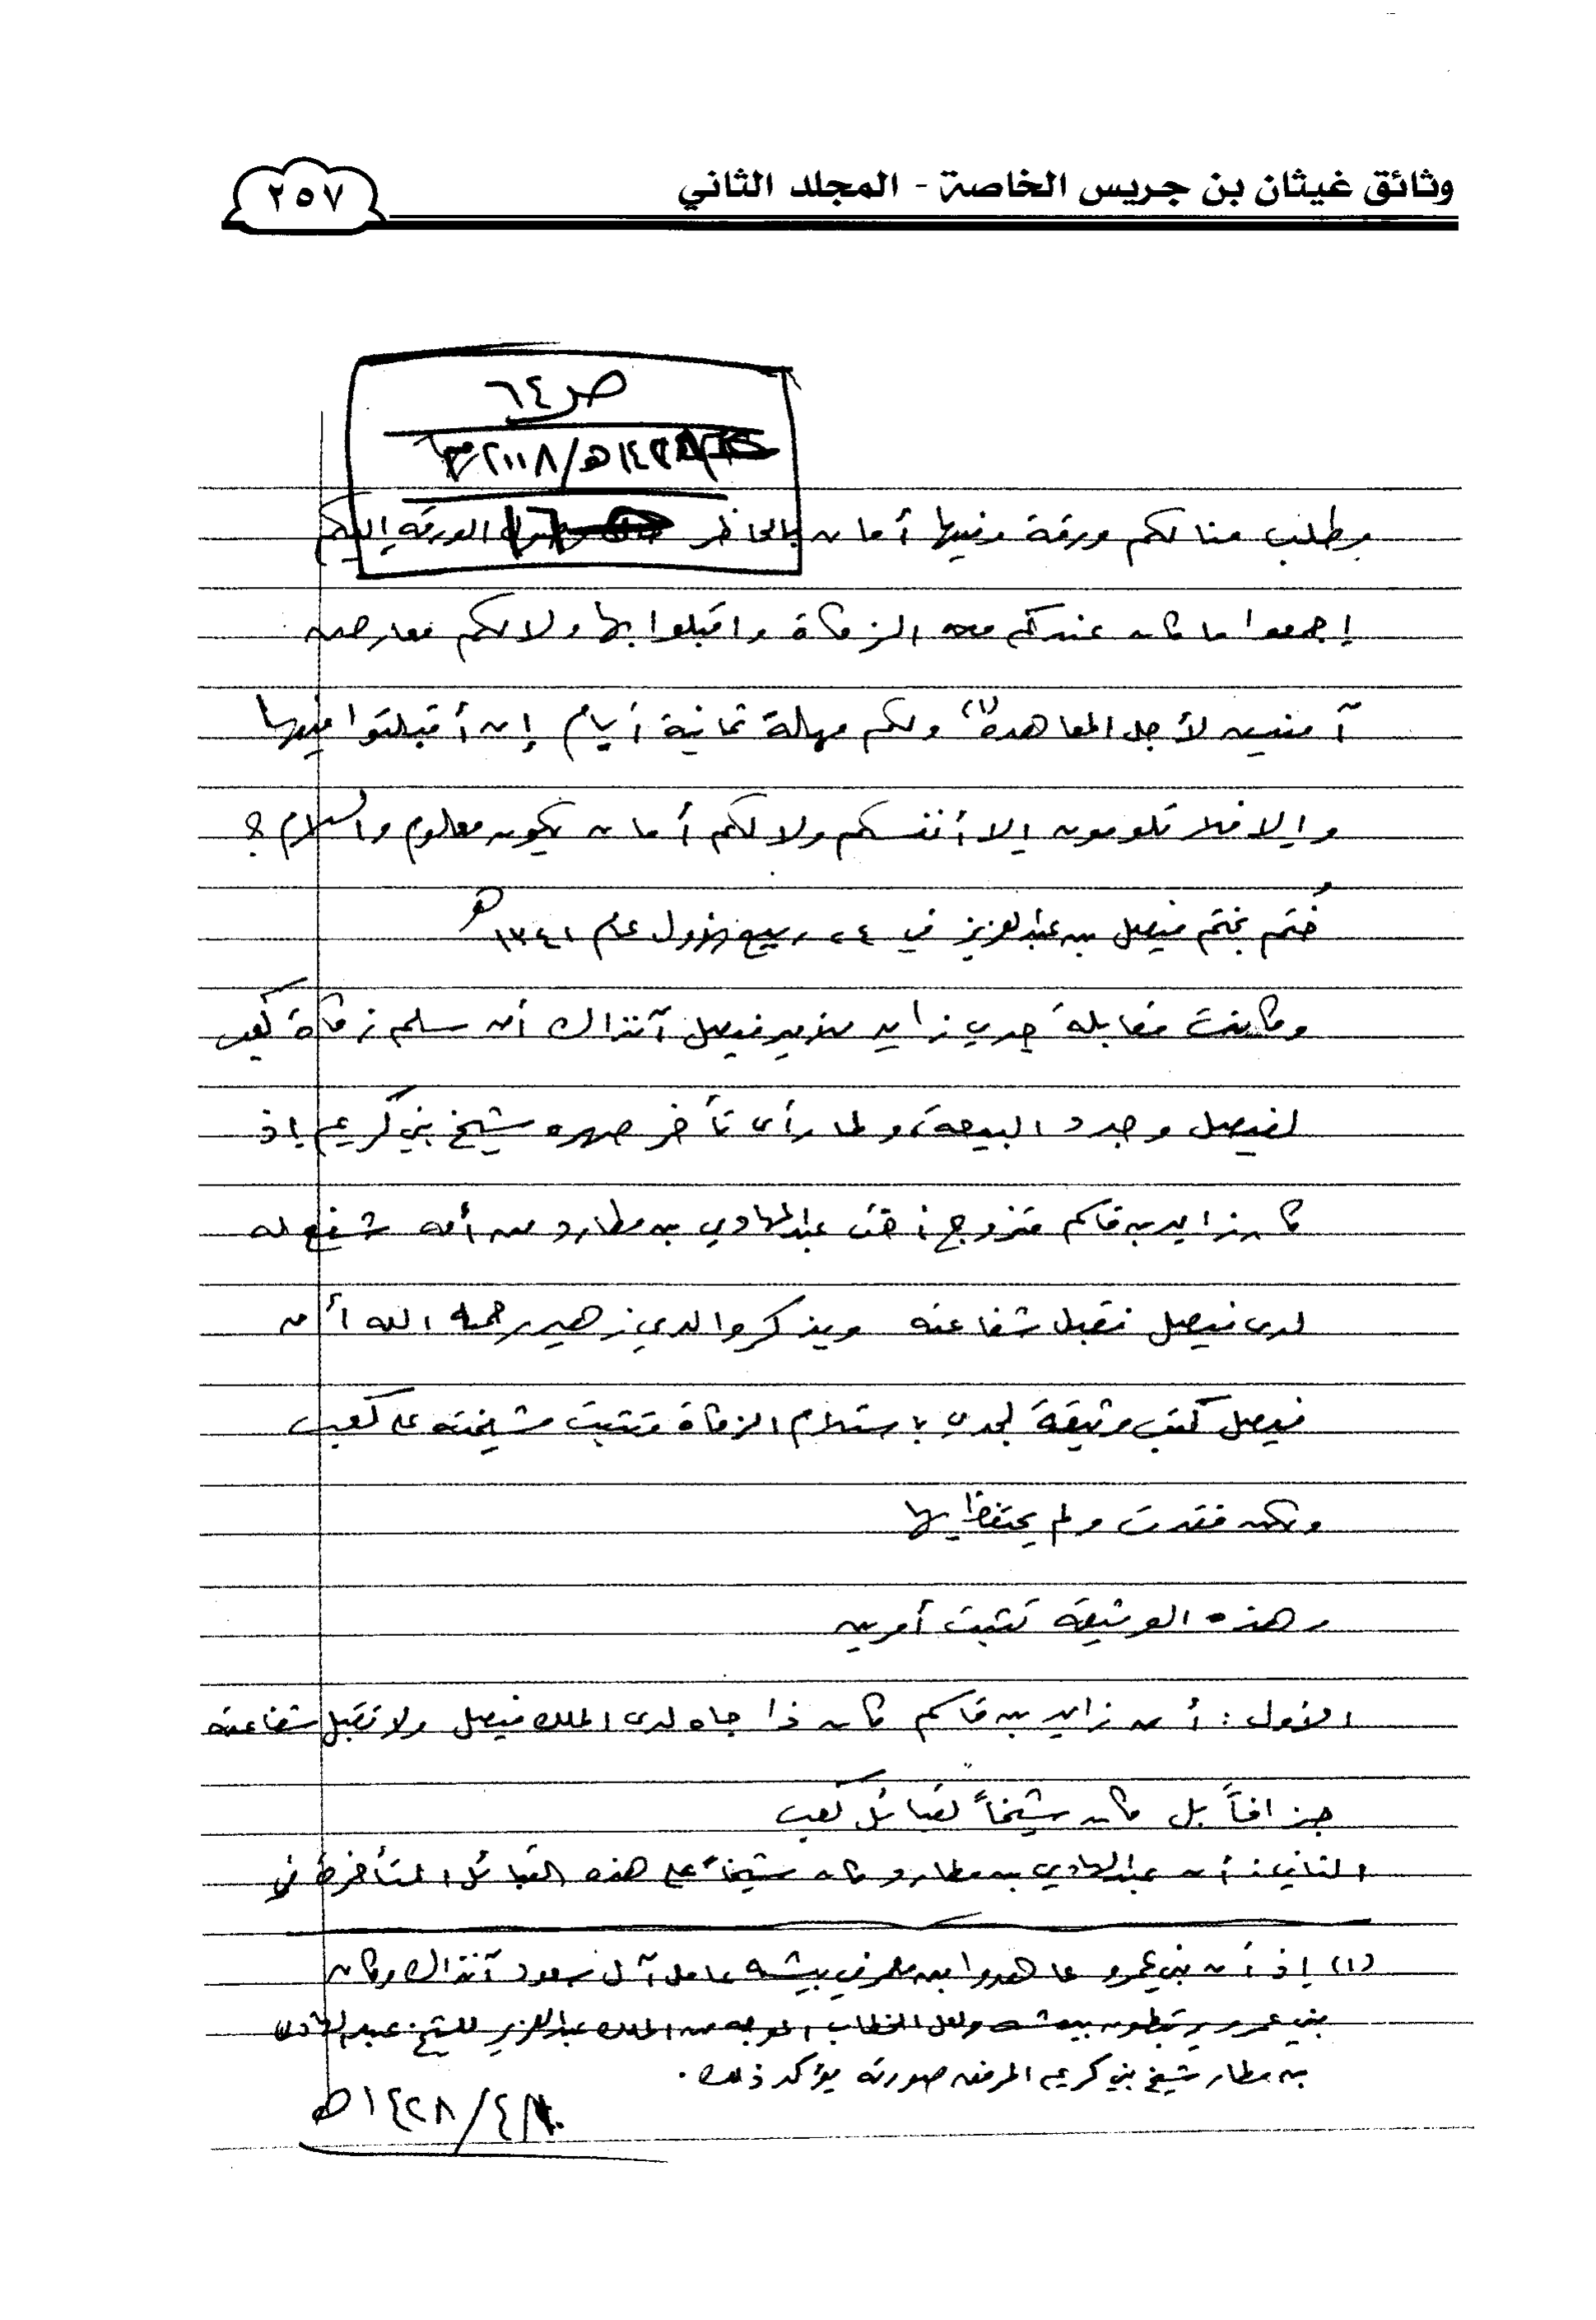 وثائق غيثان بن جريس الخاصة - المجلد الثاني
٢٥٧
ص ٦٤
وطلب منا لكم ورقة وفيها أمان بالحاظر الورقة إليكم
إجمعوا ما كان عندكم من الزكاة واقبلوا بها ولا لكم معارضه
آمنين لأجل المعاهدة (١) ولكم مهلة ثمانية أيام إن أقبلتوا فيها
وإلا فلا تلومون إلا أنفسكم ولا لكم أمان يكون معلوم والسلام
ختم بختم فيصل بن عبدالعزيز في ٢٤ ربيع الأول عام ١٣٤١هـ
وكانت مقابلة جدي زايد للأمير فيصل آنذاك أن سلم زكاة كعب
لفيصل وجدد البيعة، ولما رأى تأخر صهره شيخ بني كريم إذ
كان زايد بن قاسم متزوج أخت عبدالهادي بن مطارد من أمه شفع له
لدى فيصل فقبل شفاعته ويذكر والدي زهير رحمه الله أن
فيصل كتب وثيقة لجدي باستلام الزكاة وتثبيت مشيخته على كعب
ولكن فقدت ولم يحتفظ بها
وهذه الوثيقة تثبت أمرين
الأول: أن زايد بن قاسم كان ذا جاه لدى الملك فيصل ولا تقبل شفاعته
جزافاً بل كان شيخاً لقبائل كعب
الثاني: أن عبدالهادي بن مطارد كان شيخاً على هذه القبائل المتأخرة في
(١) إذ أن بني عمرو عاهدوا في بيشه عامل آل سعود آنذاك وكان
بني عمرو يرتبطون ببيشه ولعل الخطاب الموجه من الملك عبدالعزيز للشيخ عبدالهادي
بن مطار شيخ بني كريم المرفق صورته يؤكد ذلك.
/٤/١٤٢٨هـ